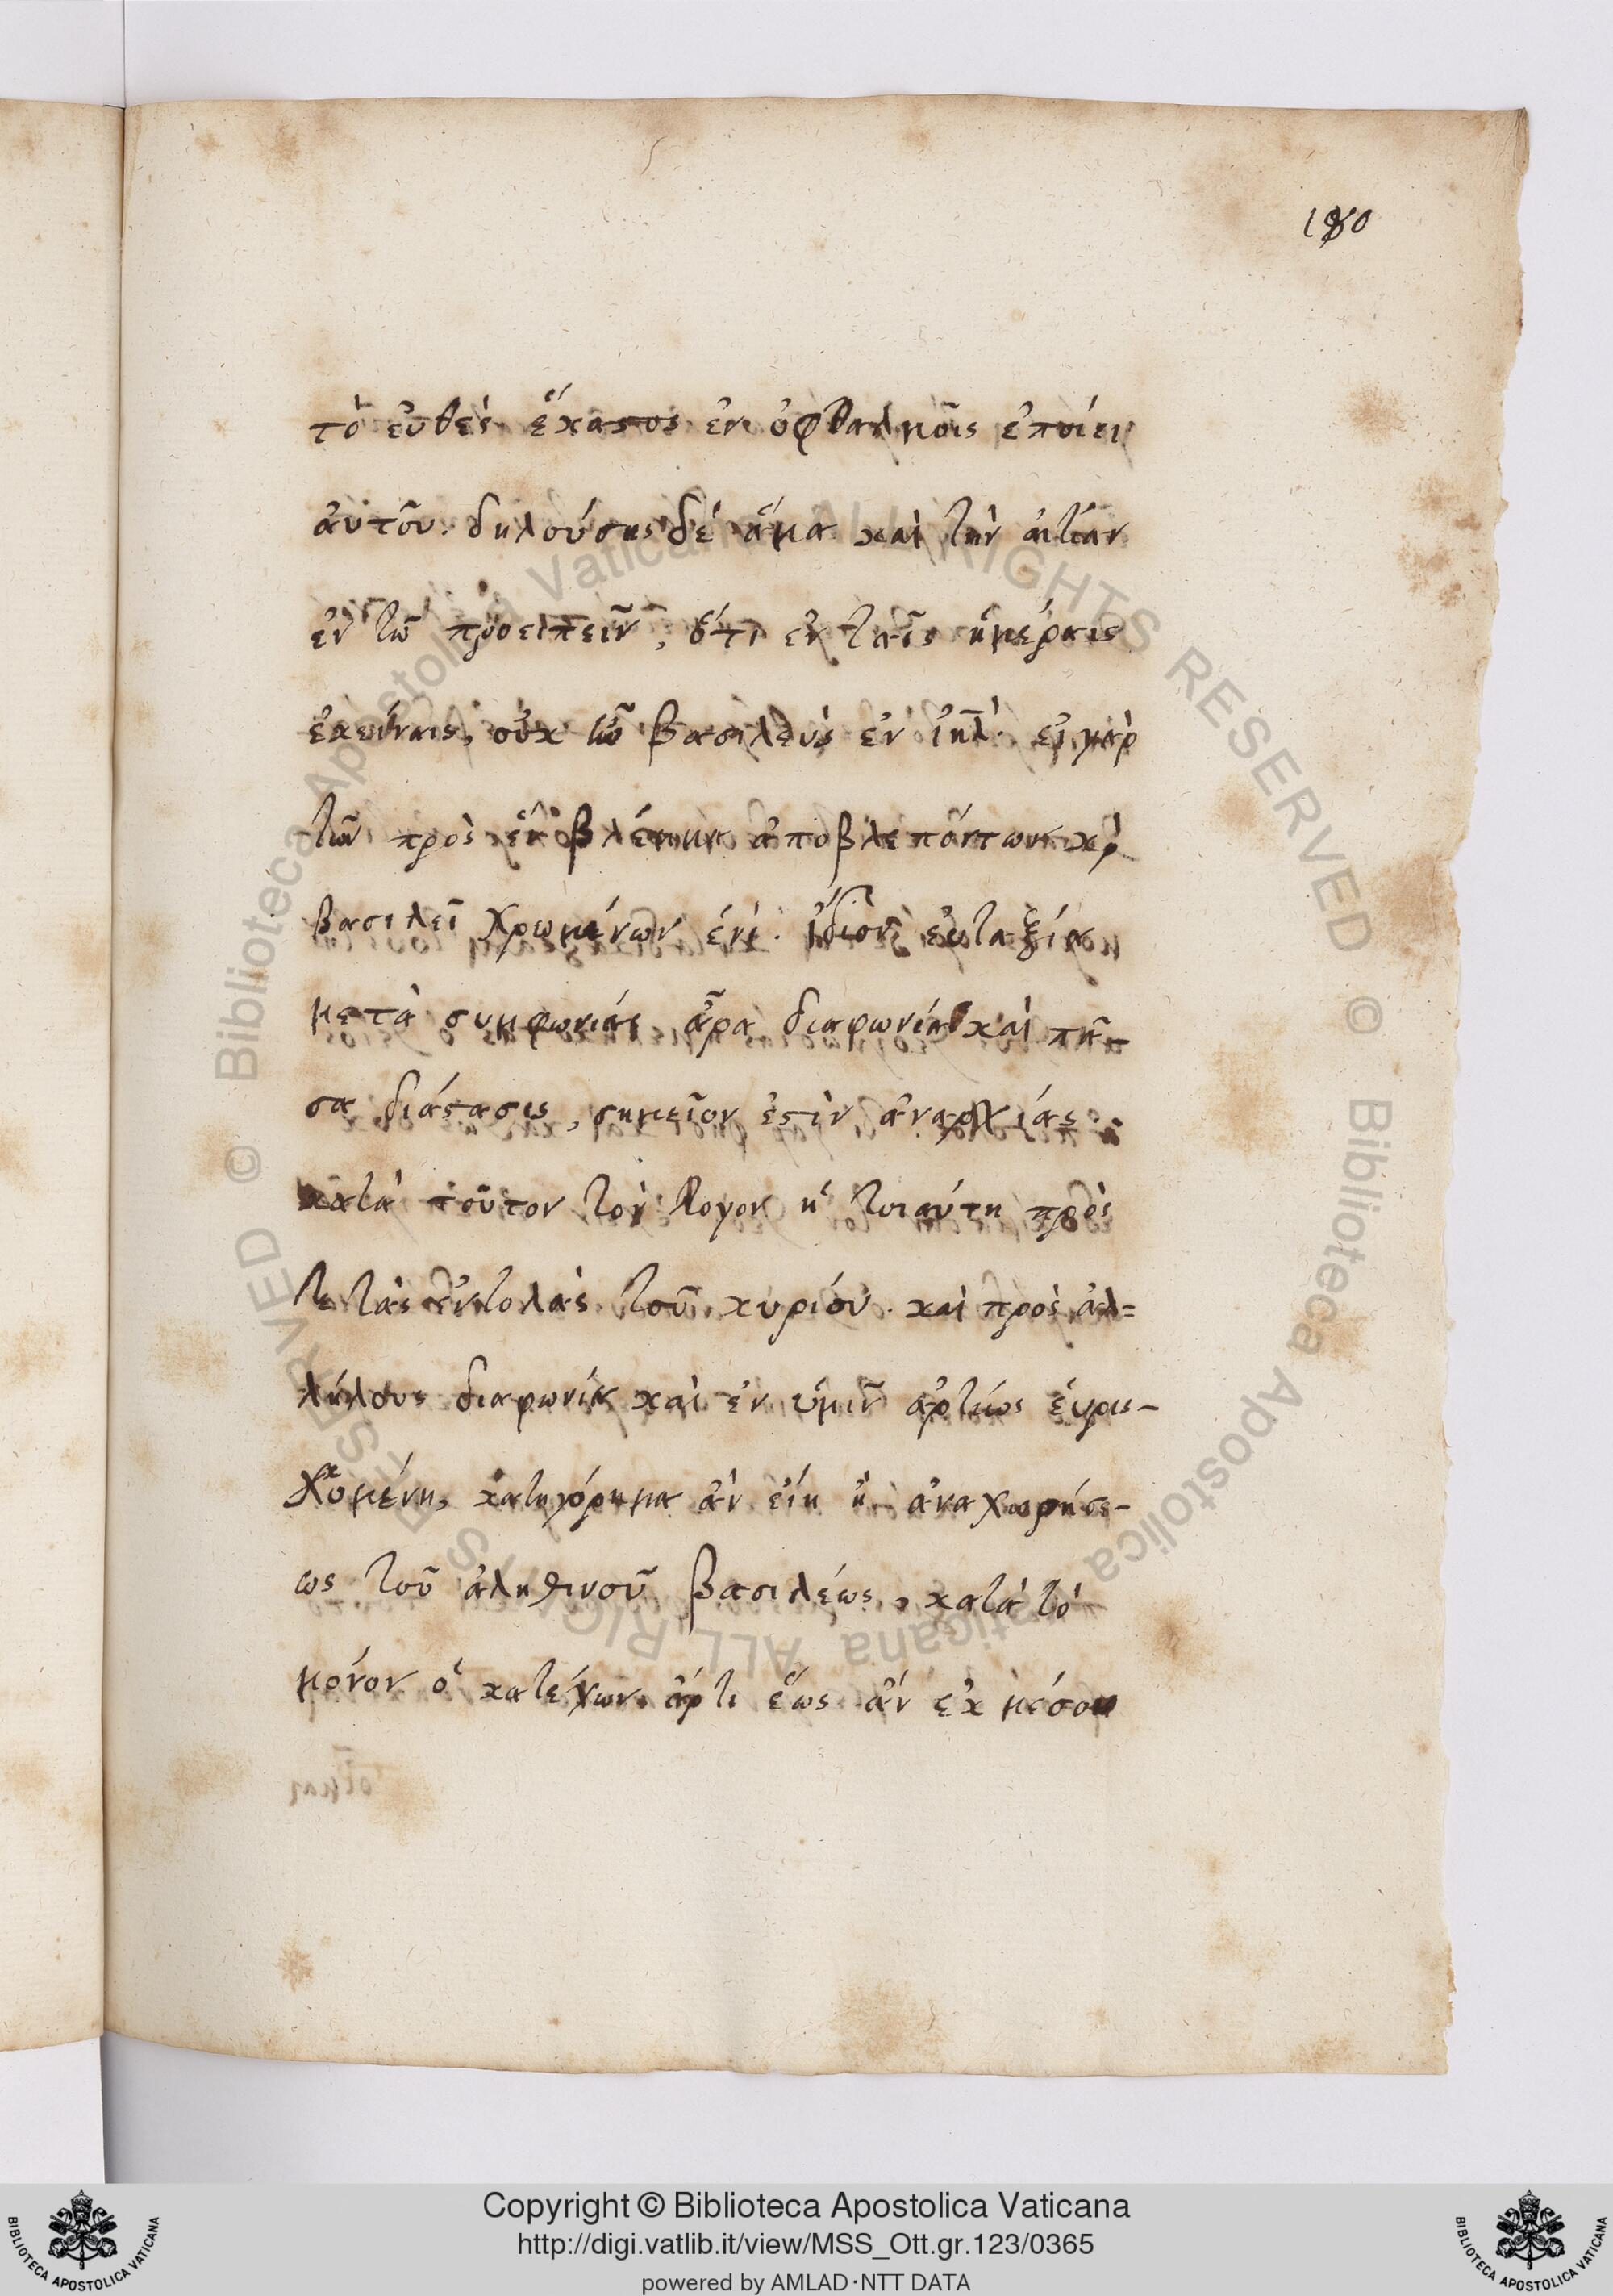 180
τὸ εὐθὲς ἕκαστος ἐν ὀφθαλμοῖς ἐποίει
αὐτοῦ. δηλούσης δὲ ἅμα καὶ τὴν αἰτίαν
ἐν τῶ προειπεῖν, ὅτι ἐν ταῖς ἡμέραις
ἐκείναις, οὐκ ἦν βασιλεὺς ἐν ἰηλ̅. εἰ γὰρ
τῶν πρὸς ἓν βλέμμα ἀποβλεπόντων καὶ
βασιλεῖ χρωμένων ἑνὶ. ἴδιον εὐταξία
μετὰ συμφωνίας ἆρα διαφωνία καὶ πᾶ-
σα διάστασις, σημεῖον ἐστὶν ἀναρχίας.
κατὰ τοῦτον τὸν λογον ἡ τοιαύτη πρὸς
τε τὰς ἐντολὰς τοῦ κυρίου. καὶ πρὸς ἀλ=
λήλους διαφωνία καὶ ἐν ὑμῖν ἀρτίως εὑρισ-
κομένη, κατηγόρημα ἂν εἴη ἢ ἀναχωρήσε-
ως τοῦ ἀληθινοῦ βασιλέως, κατὰ τὸ
μόνον ὁ κατέχων ἄρτι ἕως ἂν ἐκ μέσου
Copyright © Biblioteca Apostolica Vaticana
http://digi.vatlib.it/view/MSS_Ott.gr.123/0365
powered by AMLAD·NTT DATA
BIBLIOTECA APOSTOLICA VATICANA
BIBLIOTECA APOSTOLICA VATICANA
© Biblioteca Apostolica Vaticana ALL RIGHTS RESERVED
© Biblioteca Apostolica Vaticana ALL RIGHTS RESERVED